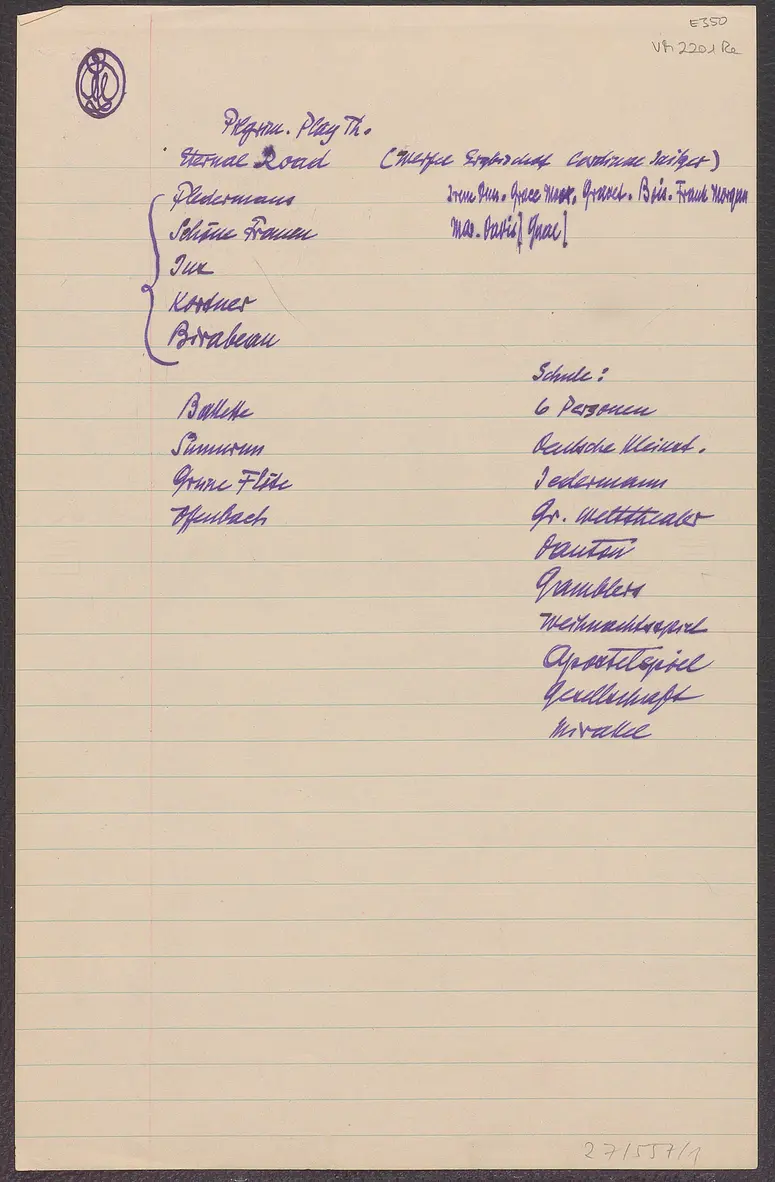 E350
VM 2201 Re
Pilgrim. Play Th.
Eternal Road (Werfel Erzbischof Cardinal
Fledermaus Irene Dun. Grace Moor. Gravet. Bois. Frank Morgan
Schöne Frauen Mar. Davis [Gaal]
Jux
Kortner
Birabeau
Schule:
Ballette 6 Personen
Sumurun Deutsche Kleinst.
Grüne Flöte Jedermann
Offenbach Gr. Welttheater
Danton
Gamblers
Weihnachtsspiel
Apostelspiel
Gesellschaft
Mirakel
27/557/1